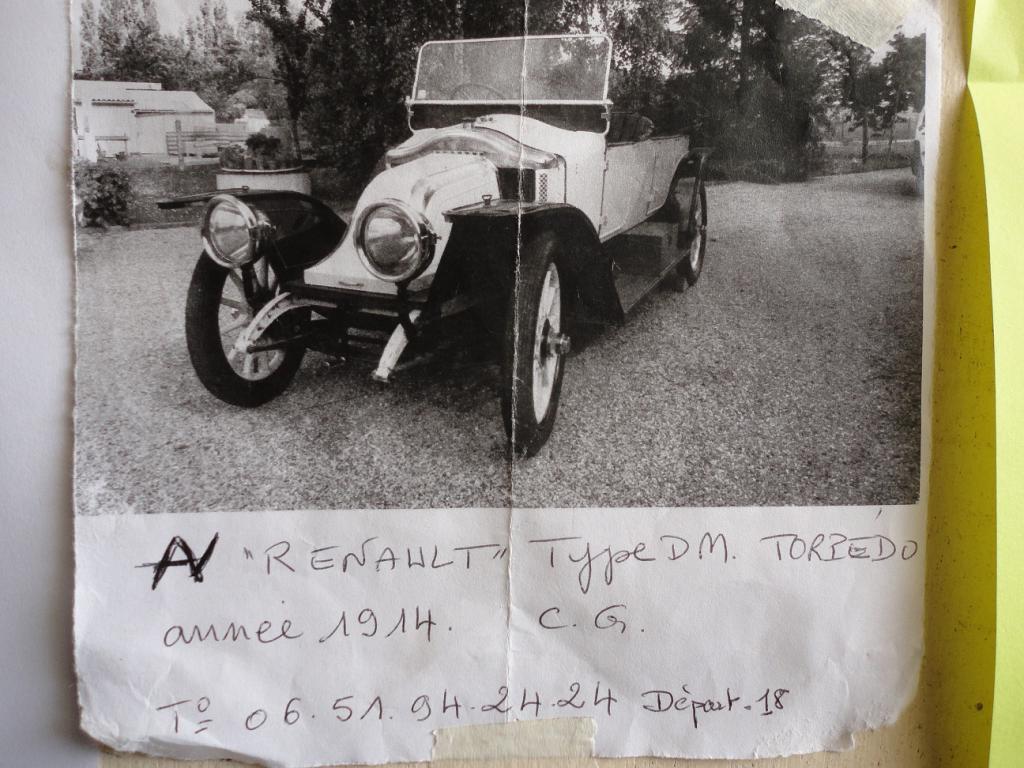 AV "RENAULT" Type DM. TORPÉDO
année 1914. C. G.
Tº 06.51.94.24.24 Départ.18